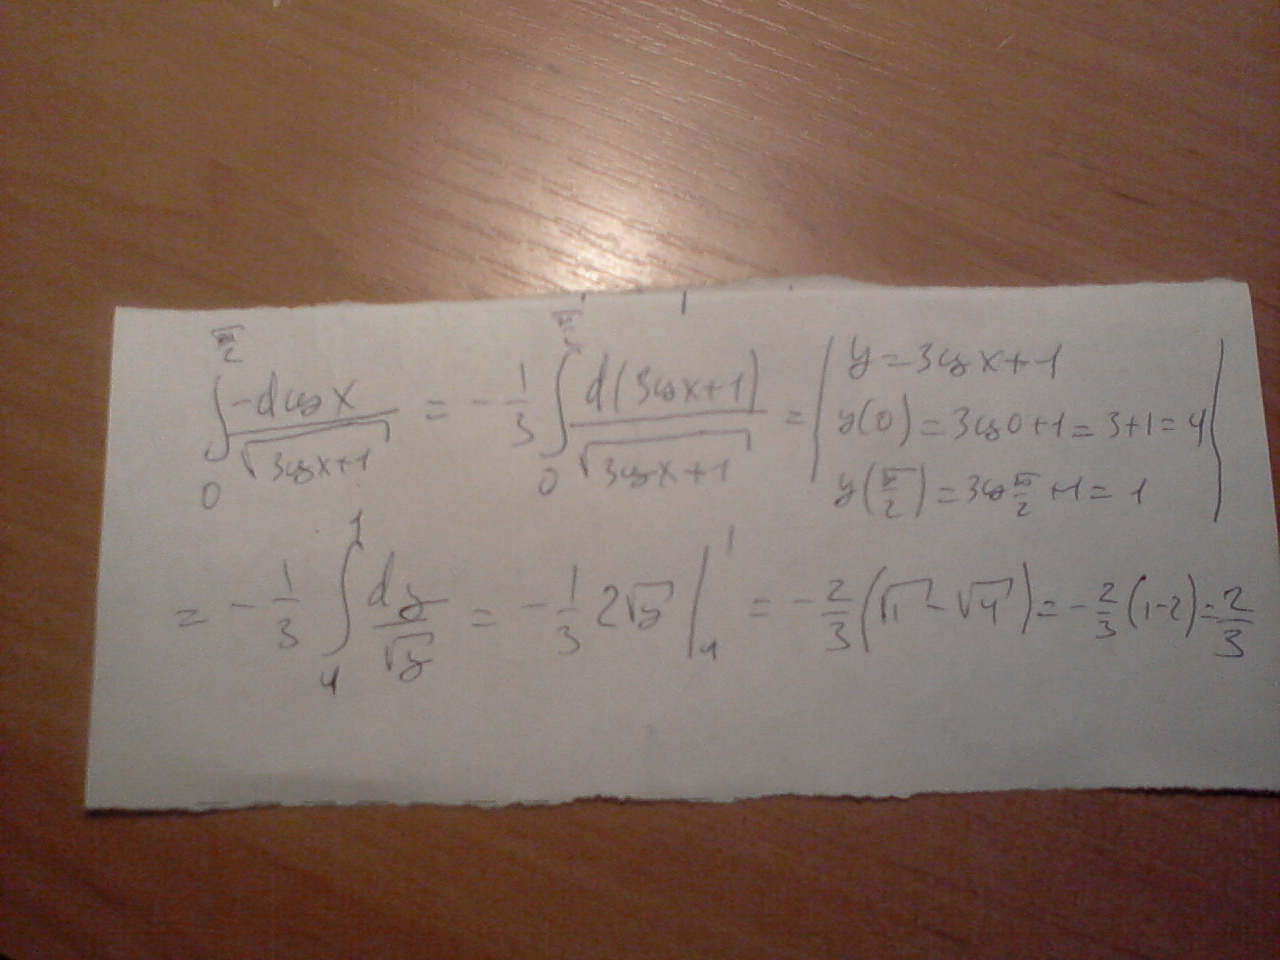 ∫₀^{π/2} -d cos x / √(3cos x+1) = -1/3 ∫₀^{π/2} d(3cos x+1) / √(3cos x+1) = | y=3cos x+1
y(0)=3cos0+1=3+1=4
y(π/2)=3cos π/2 +1=1 |
= -1/3 ∫₄¹ dy/√y = -1/3 2√y |₄¹ = -2/3 (√1 - √4) = -2/3 (1-2) = 2/3